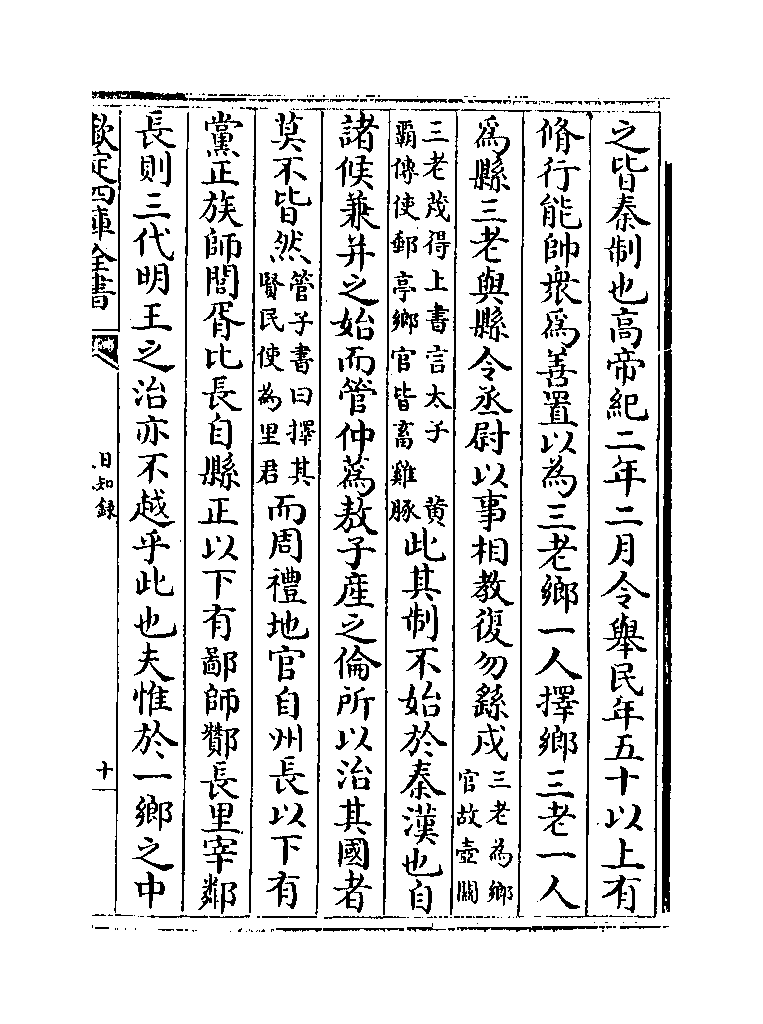 之皆秦制也高帝紀二年二月令舉民年五十以上有
脩行能帥衆為善置以為三老鄉一人擇鄉三老一人
為縣三老與縣令丞尉以事相教復勿繇戍三老為鄉官故壺關
三老茂得上書言太子 黄霸傳使郵亭鄉官皆畜雞豚此其制不始於秦漢也自
諸侯兼并之始而管仲蒍敖子産之倫所以治其國者
莫不皆然管子書曰擇其賢民使為里君而周禮地官自州長以下有
黨正族師閭胥比長自縣正以下有鄙師酇長里宰鄰
長則三代明王之治亦不越乎此也夫惟於一鄉之中
欽定四庫全書
日知録
十